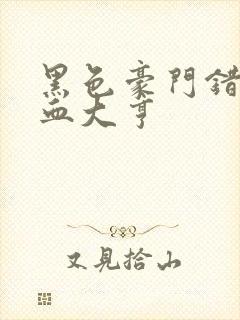 黑色豪門錯
血大亨
又見拾山